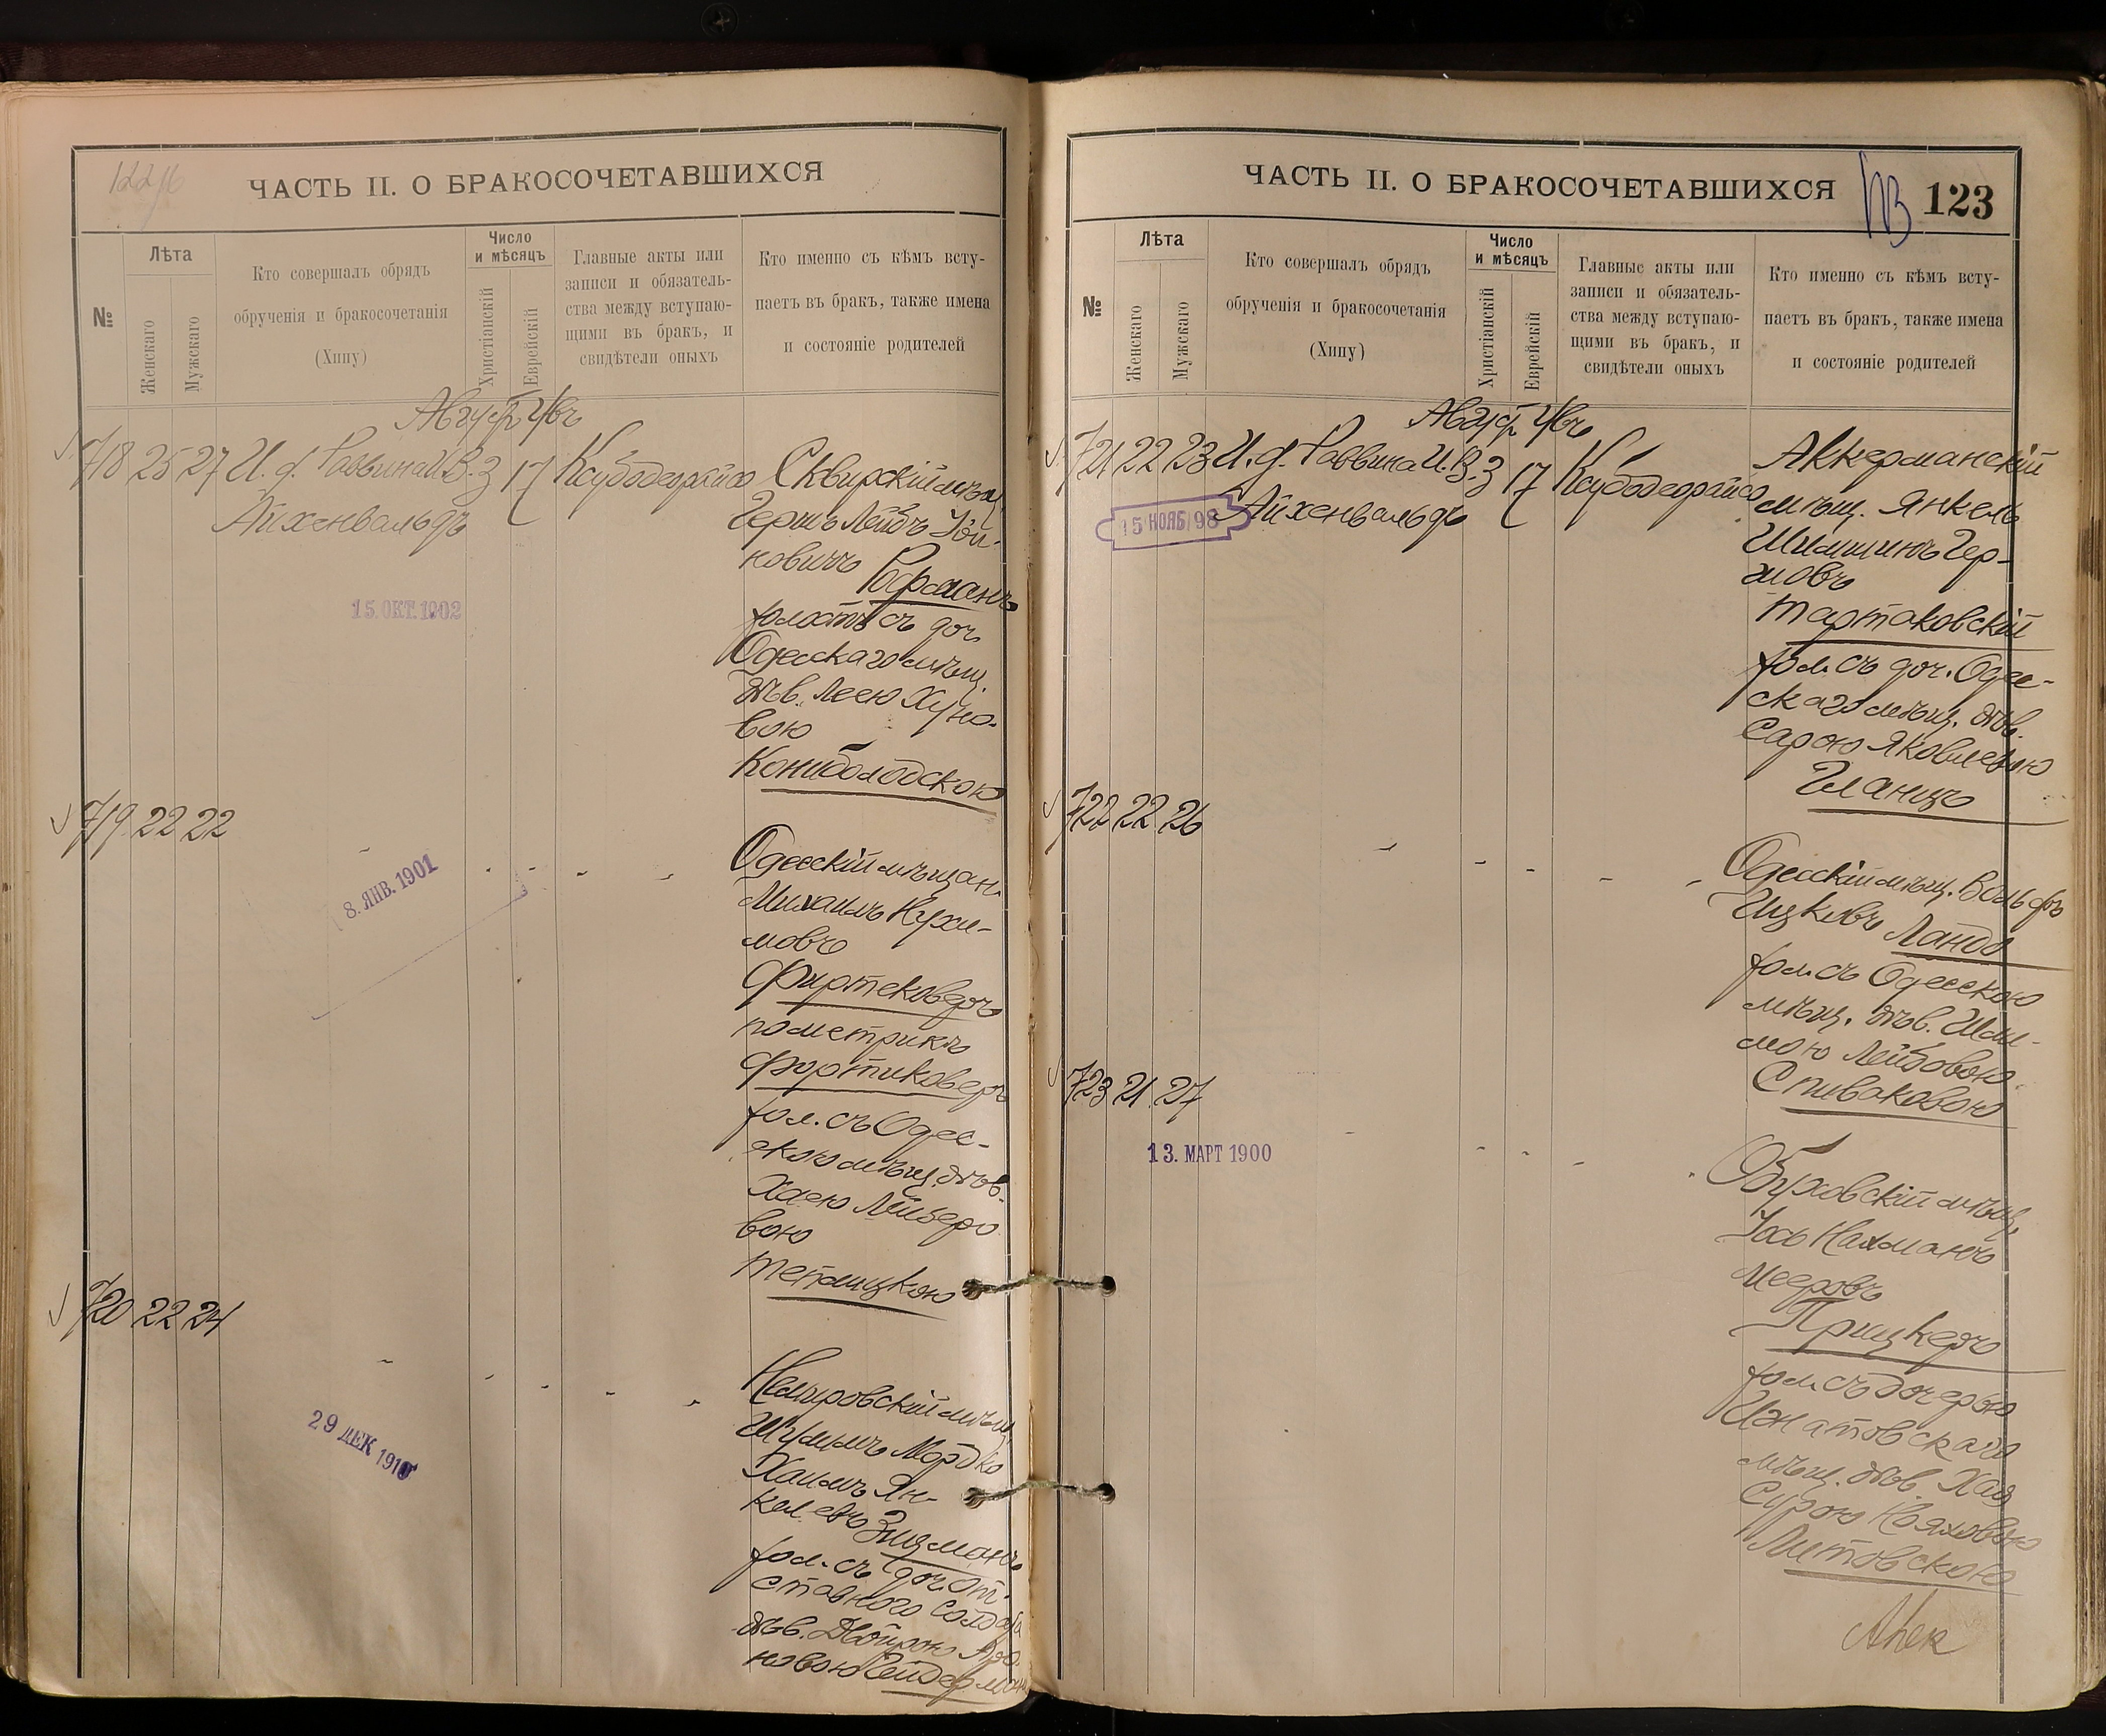 ЧАСТЬ II. О БРАКОСОЧЕТАВШИХСЯ
№
Лѣта
Женскаго
Мужскаго
Кто совершалъ обрядъ
обрученія и бракосочетанія
(Хипу)
Число
и мѣсяцъ
Христіанскій
Еврейскій
Главные акты или
записи и обязатель-
ства между вступаю-
щими въ бракъ, и
свидѣтели оныхъ
Кто именно съ кѣмъ всту-
паетъ въ бракъ, также имена
и состояніе родителей
718 25 27 И. д. Раввина И. В. 3 17
Айхенвальдъ
15. ОКТ. 1902
Сквирскій мѣщ.
Гершъ Лейбъ
новичъ Рофманъ
холостъ съ доч.
Одесскаго мѣщ.
дѣв. Леею Хуно-
вою
719 22 22
8. ЯНВ. 1901
Одесскій мѣщан.
Михаилъ Нухи-
мовъ
Фиртековеръ
по метрикѣ
Фортиковеръ
хол. съ Одес-
скою мѣщ. дѣв.
Хаею Лейзеро-
вою
Теплицкою
720 22 24
29 ДЕК 1910
Немировскій мѣщ.
Шулимъ Мордко
Хаимъ Ян-
келевъ Зицманъ
хол. съ доч. от-
ставного солдата
дѣв. Двойрою Аро-
новою
ЧАСТЬ II. О БРАКОСОЧЕТАВШИХСЯ
123
№
Лѣта
Женскаго
Мужскаго
Кто совершалъ обрядъ
обрученія и бракосочетанія
(Хипу)
Число
и мѣсяцъ
Христіанскій
Еврейскій
Главные акты или
записи и обязатель-
ства между вступаю-
щими въ бракъ, и
свидѣтели оныхъ
Кто именно съ кѣмъ всту-
паетъ въ бракъ, также имена
и состояніе родителей
721 22 23 И. д. Раввина И. В. 3 17
Айхенвальдъ
15 НОЯБ 98
Аккерманскій
мѣщ. Янкель
Шимшинъ Гер-
шовъ
Тартаковскій
хол. съ доч. Одес-
скаго мѣщ. дѣв.
Сарою Яковлевою
Гланцъ
722 22 26
Одесскій мѣщ. Вольфъ
Ицковъ Ланда
хол. съ Одесскою
мѣщ. дѣв. Шли-
мою Лейбовою
Спиваковою
723 21 27
13. МАРТ 1900
Обуховскій мѣщ.
Іось Нахманъ
Мееровъ
Прицкеръ
хол. съ дочерью
Игнатовскаго
мѣщ. дѣв. Хая
Сурою
Литовскою